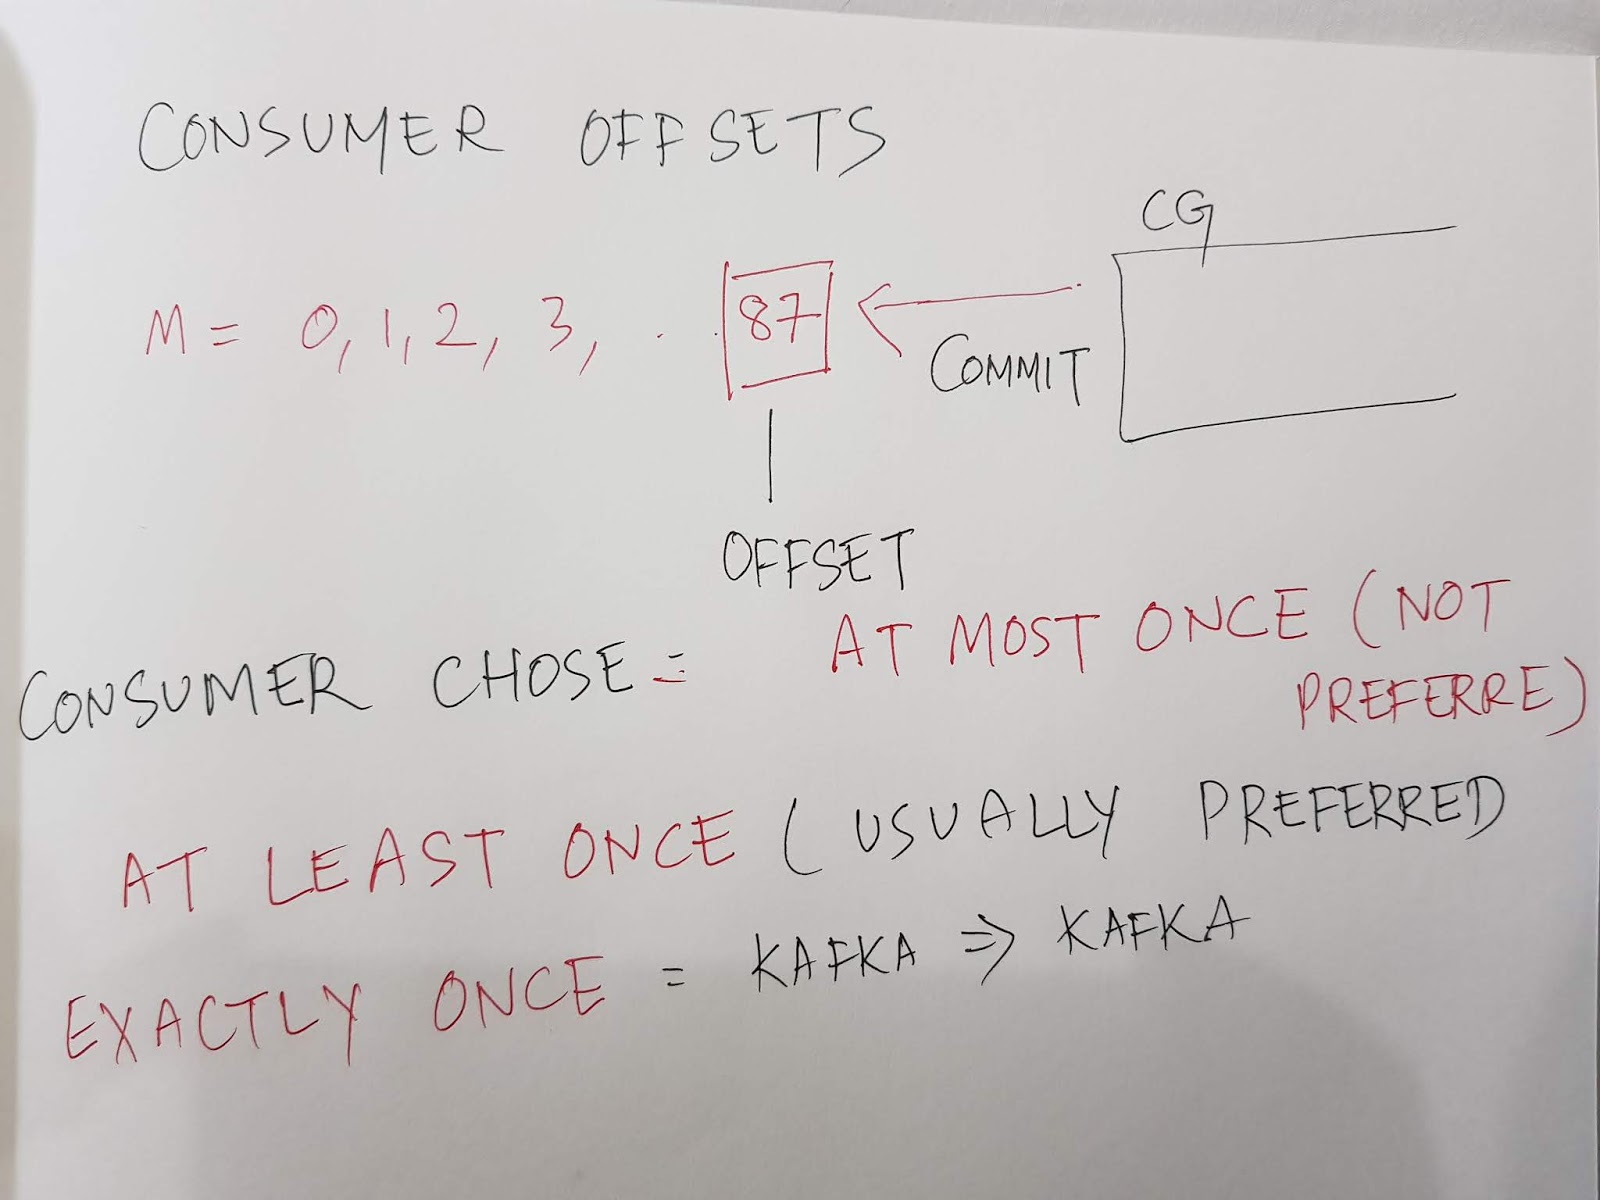 CONSUMER OFFSETS
CG
M = 0, 1, 2, 3, . . 87
COMMIT
OFFSET
CONSUMER CHOSE = AT MOST ONCE (NOT
PREFERRE)
AT LEAST ONCE (USUALLY PREFERRED
EXACTLY ONCE = KAFKA => KAFKA